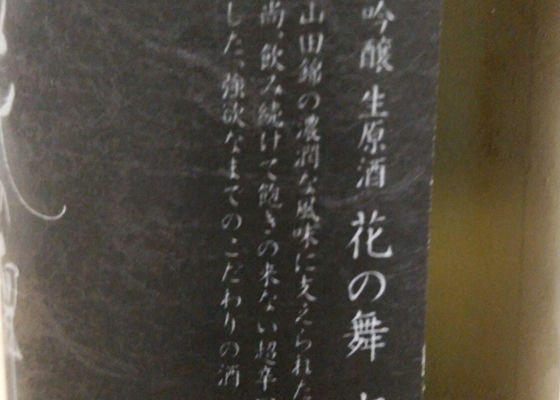 吟醸 生原酒 花の舞
山田錦の濃潤な風味に支えられた
尚、飲み続けて飽きの来ない超辛
した、強欲なまでのこだわりの酒